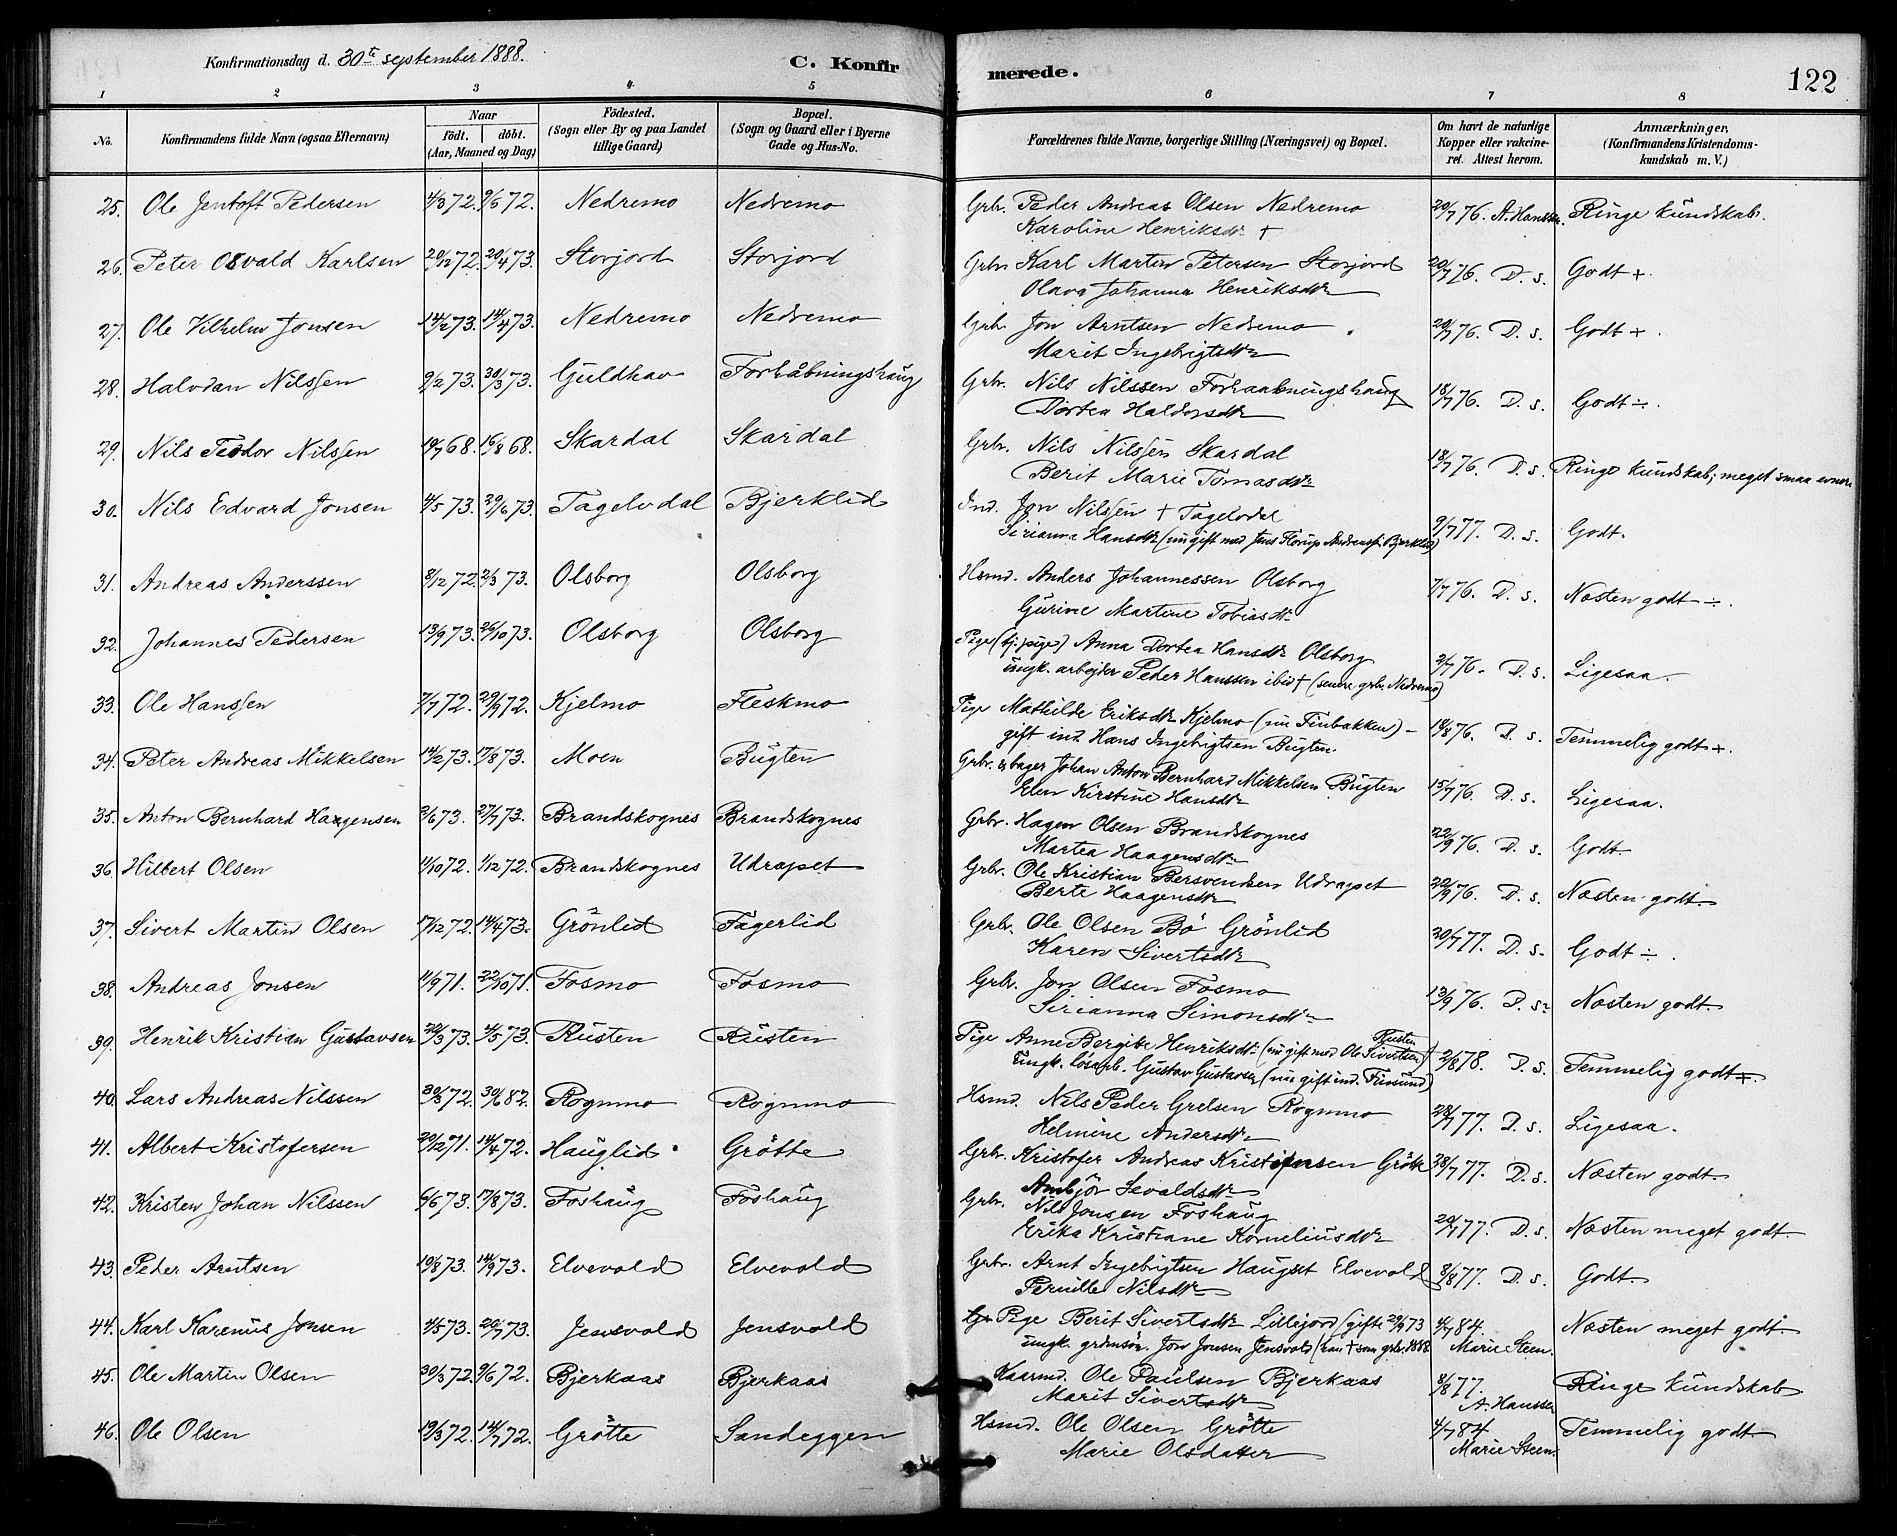 Konfirmationsdag d. 30te september 1888.
C. Konfirmerede.
122
1 2 3 4 5 6 7 8
No. Konfirmandens fulde Navn (ogsaa Efternavn) Naar födt. döbt. (Aar, Maaned og Dag) Födested. (Sogn eller By og paa Landet tillige Gaard) Bopæl. (Sogn og Gaard eller i Byerne Gade og Hus-No. Forældrenes fulde Navne, borgerlige Stilling (Næringsvei) og Bopæl. Om havt de naturlige Kopper eller vakcineret. Attest herom. Anmærkninger. (Konfirmandens Kristendomskundskab m. V.)
25. Ole Jentoft Pedersen 4/3 72. 9/6 72. Nedremo Nedremo Grbr. Peder Andreas Olsen Nedremo 20/7 76. A. Hanssen. Ringe kundskab.
Karoline Henriksdtr +
26. Peter Osvald Karlsen 20/12 72. 20/4 73. Storjord Storjord Grbr. Karl Martin Petersen Storjord 20/7 76. D. s. Godt +.
Olava Johanna Henriksdtr
27. Ole Vilhelm Jonsen 14/2 73. 14/4 73. Nedremo Nedremo Grbr. Jon Arntsen Nedremo 20/7 76. D. s. Godt +.
Marit Ingebrigtsdtr
28. Halvdan Nilssen 9/2 73. 30/3 73. Guldhav Forhåbningshaug Grbr. Nils Nilssen Forhaabningshaug 18/7 76. D. s. Godt ÷.
Dortea Haldorsdtr
29. Nils Teodor Nilssen 10/7 68. 16/8 68. Skardal Skardal Grbr. Nils Nilssen Skardal 18/7 76. D. s. Ringe kundskab; meget smaa evner
Berit Marie Tomasdtr
30. Nils Edvard Jonsen 4/5 73. 29/6 73. Tagelvdal Bjerklid Ind. Jon Nilssen + Tagelvdal 9/7 77. D. s. Godt.
Sirianna Hansdtr (nu gift med Jens Florup Andreassen Bjerklid)
31. Andreas Anderssen 8/12 72. 2/3 73. Olsborg Olsborg Hsmd. Anders Johannessen Olsborg 7/7 76. D. s. Næsten godt ÷.
Gurine Martine Tobiasdtr
32. Johannes Pedersen 13/9 73. 26/10 73. Olsborg Olsborg Pige (tj. pige) Anna Dortea Hansdtr Olsborg 2/7 76. D. s. Ligesaa.
ungk. arbejder Peder Hanssen ibid + (senere grbr. Nedremo)
33. Ole Hanssen 7/7 72. 29/9 72. Kjelmo Fleskmo Pige Mathilde Eriksdtr Kjelmo (nu Finbakken) – 18/8 76. D. s. Temmelig godt +.
gift ind. Hans Ingebrigtsen Bugten.
34. Peter Andreas Mikkelsen 14/2 73. 17/8 73. Moen Bugten Grbr. & bager Johan Anton Bernhard Mikkelsen Bugten 15/7 76. D. s. Ligesaa.
Elen Kirstine Hansdtr
35. Anton Bernhard Haagensen 2/6 73. 27/7 73. Brandskognes Brandskognes Grbr. Hagen Olsen Brandskognes 22/9 76. D. s. Godt.
Martea Haagensdtr
36. Hilbert Olsen 11/10 72. 1/12 72. Brandskognes Udrapet Grbr. Ole Kristian Bersvendsen Udrapet 22/9 76. D. s. Næsten godt.
Berte Haagensdtr
37. Sivert Martin Olsen 17/12 72. 14/4 73. Grönlid Fagerlid Grbr. Ole Olsen Bö Grönlid 30/7 77. D. s. Godt ÷.
Karen Sivertsdtr
38. Andreas Jonsen 11/9 71. 22/10 71. Fosmo Fosmo Grbr. Jon Olsen Fosmo 13/9 76. D. s. Næsten godt.
Sirianna Simonsdtr
39. Henrik Kristian Gustavsen 20/3 73. 4/5 73. Rusten Rusten Pige Anne Bergite Henriksdtr (nu gift med Ole Sivertsen Rusten) 2/9 78. D. s. Temmelig godt
Ungk. lösarb. Gustav Gustavsen (nu gift ind. Finsund)
40. Lars Andreas Nilssen 30/3 72. 30/6 82. Rognmo Rognmo Hsmd. Nils Peder Grelsen Rognmo 28/7 77. D. s. Ligesaa.
Helmine Andersdtr
41. Albert Kristofersen 20/12 71. 14/4 72. Hauglid Grötte Grbr. Kristofer Andreas Kristensen Grötte 28/7 77. D. s. Næsten godt.
Ambjör Sevaldsdtr
42. Kristen Johan Nilssen 6/6 73. 17/8 73. Foshaug Foshaug Grbr. Nils Jonsen Foshaug 20/7 77. D. s. Næsten meget godt.
Erika Kristiane Korneliusdtr
43. Peder Arntsen 19/8 73. 14/9 73. Elvevold Elvevold Grbr. Arnt Ingebrigtsen Haugset Elvevold 8/8 77. D. s. Godt.
Pernille Nilsdtr
44. Karl Karenus Jonsen 4/5 73. 20/7 73. Jensvold Jensvold Pige Berit Sivertsdtr Lillejord (gifte 29/9 73 4/7 84. Næsten meget godt.
ungk. grdmsön. Jon Jonsen Jensvold (han + som grbr. 1888 Marie Steen.
45. Ole Martin Olsen 30/3 72. 9/6 72. Bjerkaas Bjerkaas Kaarmd. Ole Paulsen Bjerkaas 8/8 77. Ringe kundskab
Marit Sivertsdtr A. Hanssen
46. Ole Olsen 19/3 72. 14/7 72. Grötte Sandeggen Hsmd. Ole Olsen Grötte 4/7 84 Temmelig godt.
Marie Olsdatter Marie Steen.